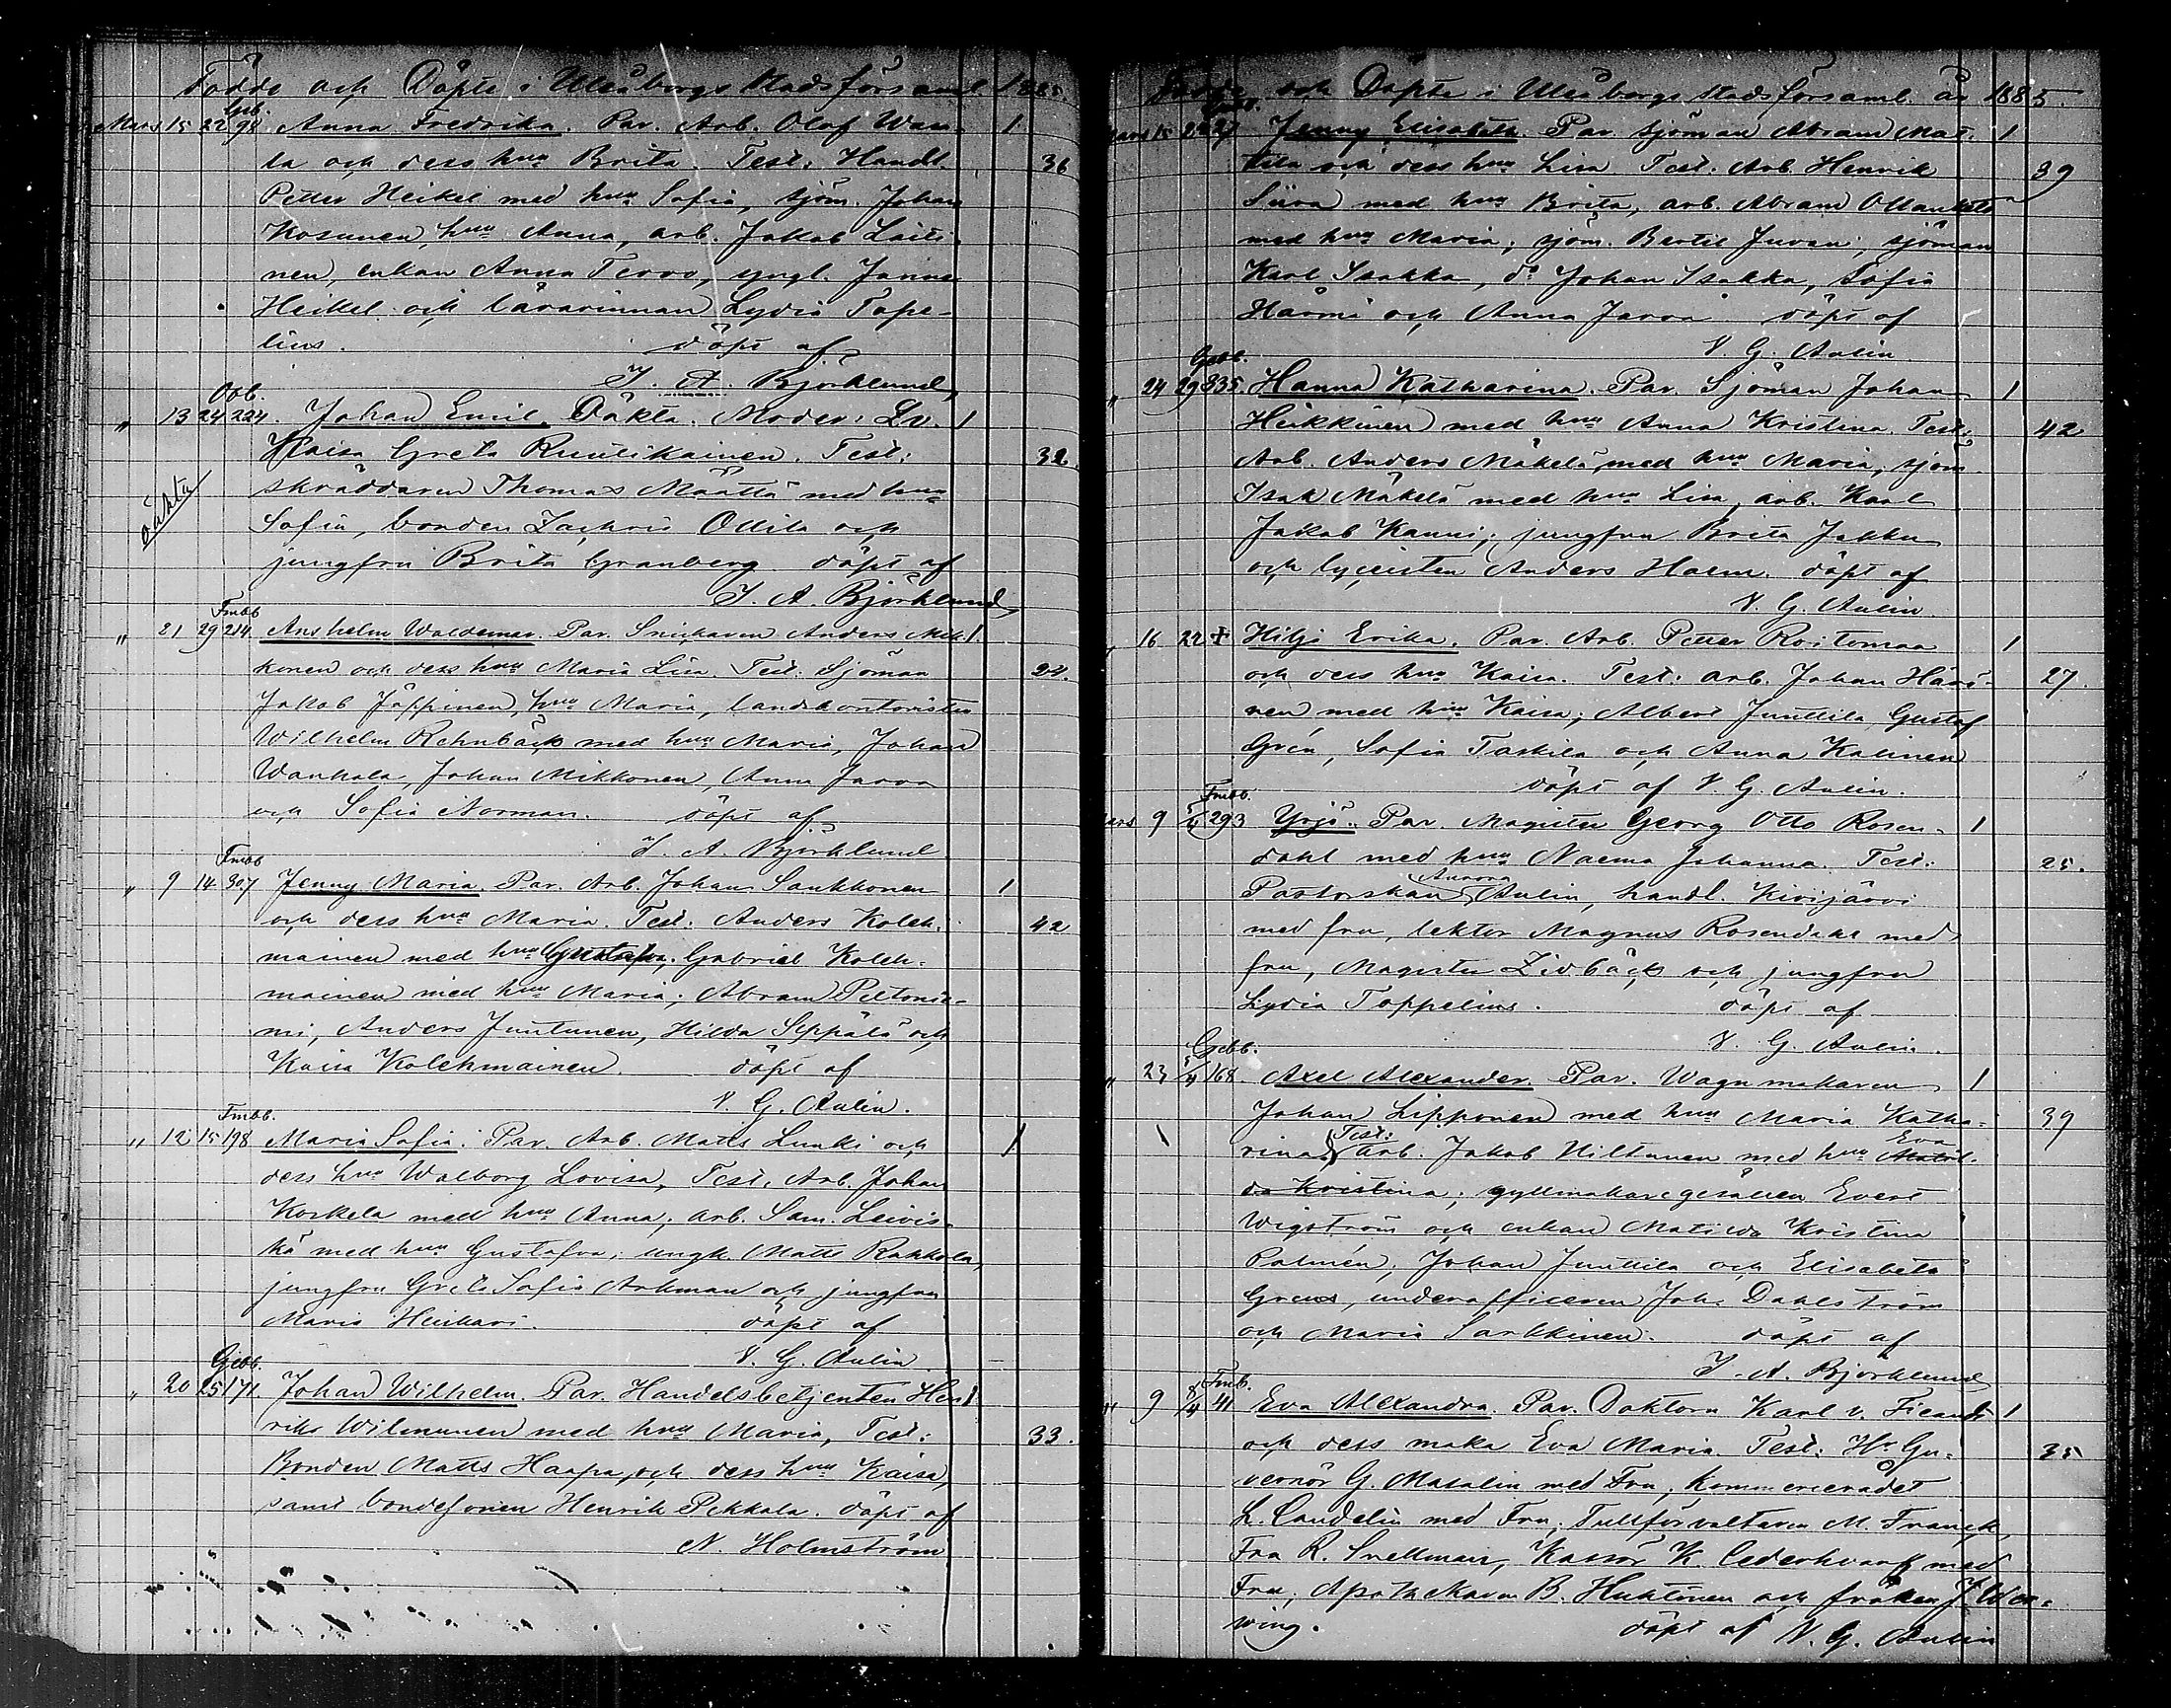 Födde och Döpte i Uleåborgs Stadsförsaml. 1885.
Geb.
Mars 15 22 98 Anna Fredrika. Par. Arb. Olof Wan- 1
la och dess hu Brita. Test: Handl. 36
Petter Heikel med hu Sofia, sjöm. Johan
Kosunen, hu Anna, arb. Jakob Laiti-
nen, enkan Anna Tervo, yngl. Janne
Heikel och lärarinnan Lydia Tope-
lius. döpt af
J. A. Björklund
Obb.
" 13 24 224. Johan Emil. Oäkta. Moder: Lv. 1
Kaisa Greta Ruutikainen. Test: 32.
oäkta
skräddaren Thomas Määttä med hu
Sofia, bonden Zachris Ollila och
jungfru Brita Granberg. döpt af
J. A. Björklund
Fmbb
" 21 29 214. Anshelm Waldemar. Par. Snickaren Anders Mik- 1.
konen och dess hu Maria Lisa. Test: Sjöman 24.
Jakob Jäppinen, hu Maria, landskontoristen
Wilhelm Rehnbäck med hu Maria, Johan
Wankala, Johan Mikkonen, Anna Jarva
och Sofia Norman. döpt af
J. A. Björklund
Fmbb
" 9 14 307 Jenny Maria. Par. Arb. Johan Saukkonen 1
och dess hu Maria. Test: Anders Koleh- 42
mainen med hu Gustafva; Gabriel Koleh-
mainen med hu Maria; Abram Peltonie-
mi, Anders Juntunen, Hilda Seppälä och
Kaisa Kolehmainen. döpt af
V. G. Aulin.
Fmbb.
" 12 15 198 Maria Sofia. Par. Arb. Matts Lunki och 1
dess hu Walborg Lovisa, Test. Arb. Johan
Korkela med hu Anna; arb. Sam. Leivis-
kä med hu Gustafva; ungk. Matts Rahkola,
jungfru Greta Sofia Arkman och jungfru
Maria Heikari. döpt af
V. G. Aulin
Gebb.
" 20 25 171 Johan Wilhelm. Par. Handelsbetjenten Hen- 1
riks Wilmunen med hu Maria, Test: 33.
Bonden Matts Haapa och dess hu Kaisa,
samt bondesonen Henrik Pekkala. döpt af
N. Holmström
Födde och Döpte i Uleåborgs stadsförsaml. år 1885.
Mars 15 22 27 Jenny Elisabeth. Par sjöman Abram Mat- 1
tila och dess hu Lisa. Test: Arb. Henrik 39
Siira med hu Brita, arb. Abram Ollanketo
med hu Maria, sjöm. Bertil Juvani, sjöman
Karl Isakka, do Johan Isakka, Sofia
Härmä och Anna Jarva döpt af
V. G. Aulin
Gebb.
" 24 29 335. Hanna Katharina. Par. Sjöman Johan 1
Heikkinen med hu Anna Kristina. Test: 42
Arb. Anders Mäkelä med hu Maria, sjöm
Isak Mäkelä med hu Lisa, arb. Karl
Jakob Kanni; jungfru Brita Jakku
och lyceisten Anders Holm. döpt af
V. G. Aulin
" 16 22 + Hilja Erika. Par. Arb. Petter Roitomaa 1
och dess hu Kaisa. Test: arb. Johan Häri- 27.
nen med hu Kaisa; Albert Juuttila Gustaf
Grén, Sofia Taskila och Anna Kalinen
döpt af V. G. Aulin.
Fmbb.
Mars 9 5/4 293 Yrjö. Par. Magister Georg Otto Rosen- 1
dahl med hu Naema Johanna. Test: 25.
Pastorskan Aurora Aulin, handl. Kivijärvi
med fru, lektor Magnus Rosendahl med
fru, Magister Lidbäck och jungfru
Lydia Toppelius. döpt af
V. G. Aulin.
Gebb.
" 23 5/4 168. Axel Alexander. Par. Wagnmakaren 1
Johan Lipponen med hu Maria Katha- 39
rina Test: Arb. Jakob Hiltunen med hu Eva Matil-
da Kristina; gyllmakaregesällen Evert
Wigström och enkan Matilda Kristina
Palmén; Johan Juuttila och Elisabeta
Grens, underofficeren Joh. Dahlström
och Maria Sarkkinen. döpt af
J. A. Björklund
Fmb.
" 9 8/4 41 Eva Alexandra. Par. Doktorn Karl v. Fieandt 1
och dess maka Eva Maria. Test: Hr Gu- 35
vernör G. Masalin med Fru; Kommerserådet
L. Candelin med Fru; Tullförvaltaren M. Franck,
Fru R. Snellman, Kassör K. Cederhvarf med
Fru; Apothekaren B. Huhtinen och fröken J. Wer-
wing. döpt af V. G. Aulin